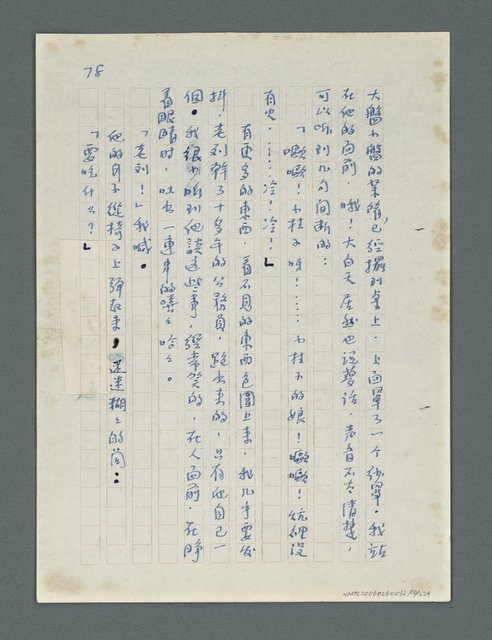 大盤小盤的菜餚,已經擺到桌上,上面罩了一个紗罩。我站
在他的面前,哦!大白天居然也說夢話,声音不太清楚,
可以听到几句间断的:
「噉噉!小桂子呀!……小桂子的娘!噉噉!炕裡没
有火,……冷!冷!」
有更多的東西,看不見的東西包圍上來,我几乎要发
抖,老刘幹了十多年的公務員,跑出來的,只有他自己一
個。我很少听到他談这些事,經常笑的,在人面前,在睁
着眼睛時,吐出一連串的嘻嘻哈哈。
「老刘!」我喊。
他的身子從椅子上彈起來,迷迷糊糊的問:
「要吃什么?」
78
NMTL20060260032